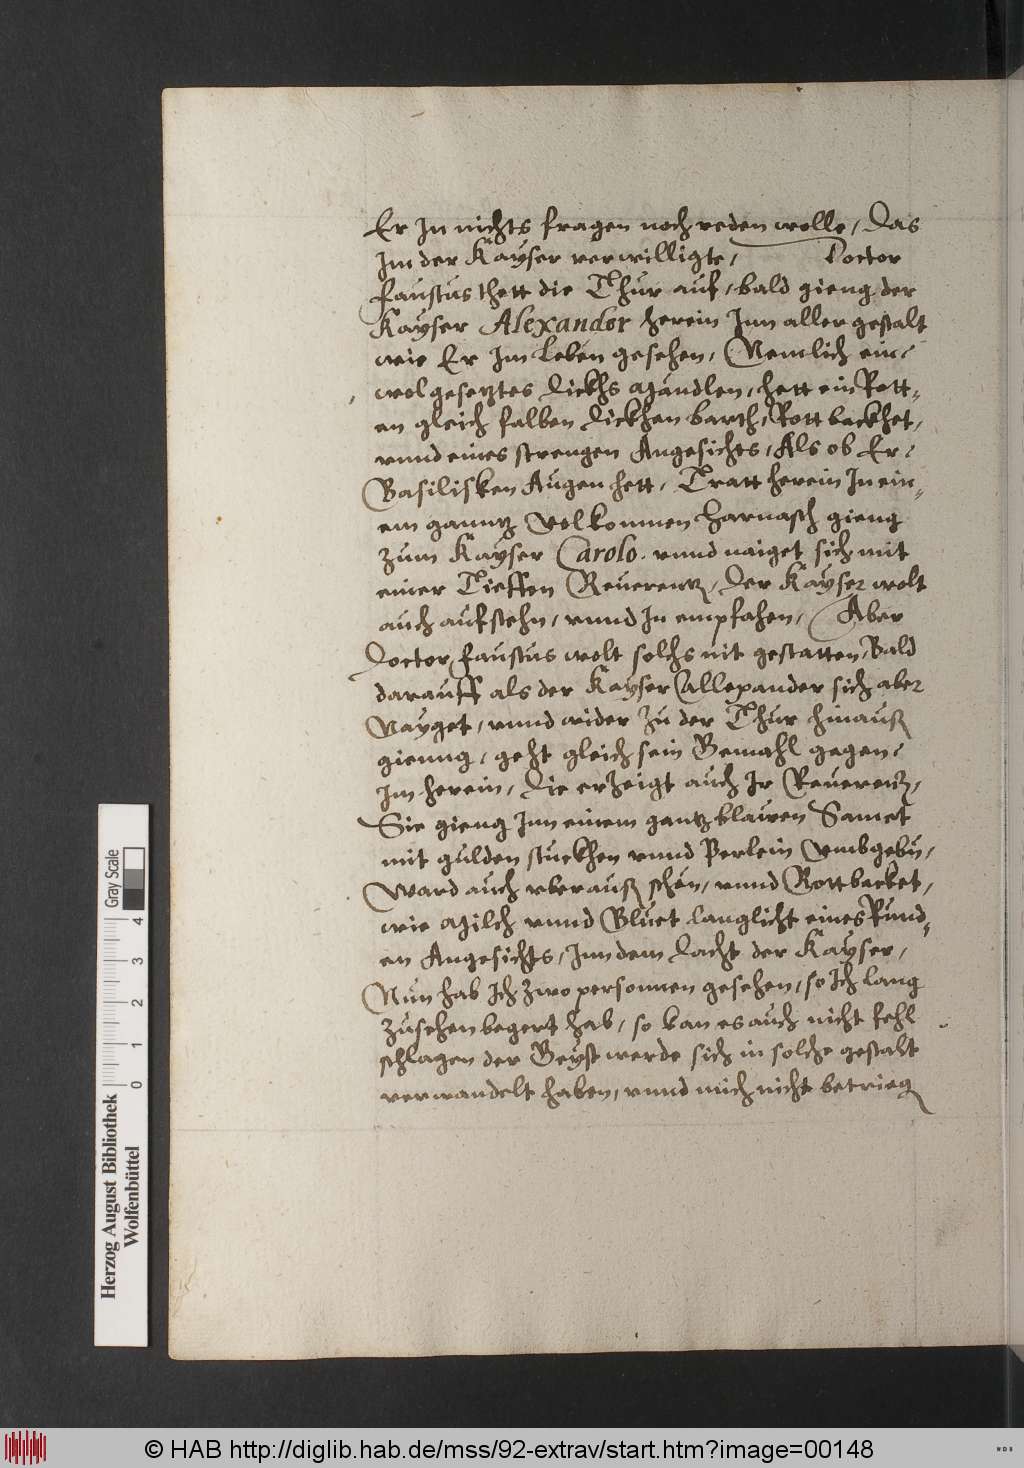 Er Jn nichts fragen noch reden wolle, Das
Jm der Kayser verwilligte, Doctor
Faustus thett die Thür auf, bald gieng der
Kayser Alexander herein Jnn aller gestalt
wie Er Jm Leben gesehen, Nemlich ein
wolgesetztes dickhs Mändlen, hett ein Rott-
en gleich falben dickhen barth, Rott backhet,
vnnd eines strengen Angesichts, Als ob Er
Basilisken Augen hett, Tratt herein Jn ein-
em ganntz volkommen Harnasch gieng
zum Kayser Carolo. vnnd naiget sich mit
einer Tieffen Reuerentz, Der Kayser wolt
auch aufstehn, vnnd Jn empfahen, Aber
Doctor Faustus wolt solchs nit gestatten, Bald
darauff als der Kayser Allexander sich aber
Nayget, vnnd wider zu der Thür hinauß
gienng, geht gleich sein Gemahl gegen
Jm herein, die erzeigt auch Jr Reuerentz,
Sie gieng Jnn einem gantz blawen Samet
mit gulden stuckhen vnnd Perlein vmbgeben,
Ward auch vberauß schön, vnnd Rottbacket,
wie Milch vnnd Bluet langlicht eines Rund-
en Angesichts, Jnn dem dacht der Kayser,
Nun hab Jch zwo personnen gesehen, so Jch lang
zusehen begert hab, so kan es auch nicht fehl
schlagen der Geyst werde sich in solche gestalt
verwandelt haben, vnnd mich nicht betrieg
Herzog August Bibliothek
Wolfenbüttel
0 1 2 3 4
Gray Scale
© HAB http://diglib.hab.de/mss/92-extrav/start.htm?image=00148